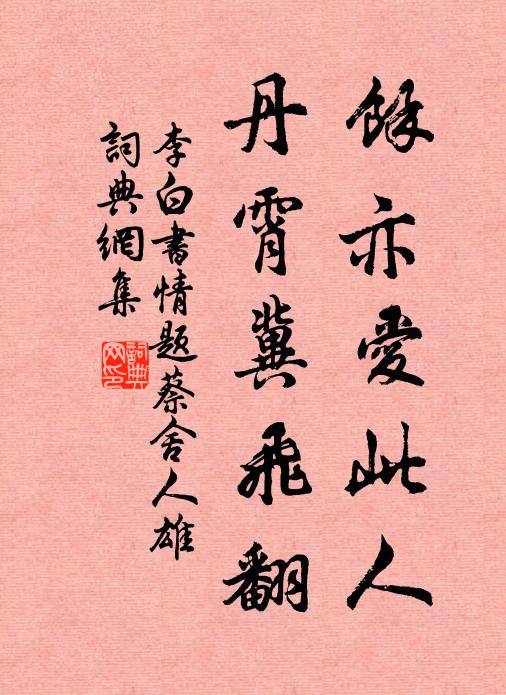 餘亦愛此人
丹霄冀飛翻
李白書情題蔡舍人雄
詞典網集
詞典網印